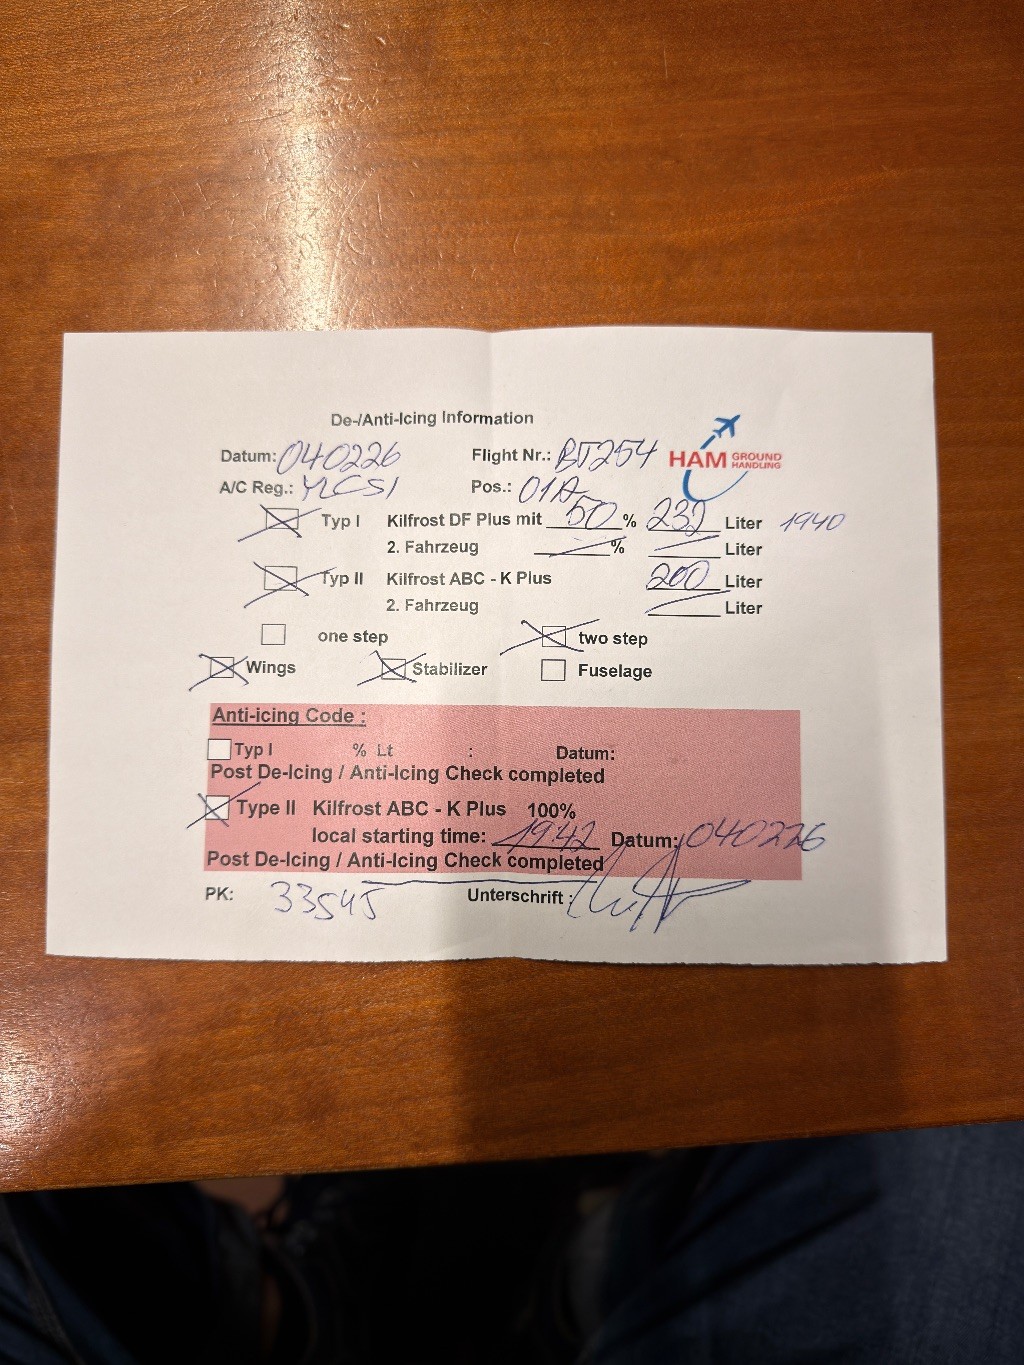 De-/Anti-Icing Information
Datum: 040226 Flight Nr.: BT254 HAM GROUND HANDLING
A/C Reg.: YLCSI Pos.: 01A
Typ I Kilfrost DF Plus mit 50 % 232 Liter 1940
2. Fahrzeug % Liter
Typ II Kilfrost ABC - K Plus 200 Liter
2. Fahrzeug Liter
one step two step
Wings Stabilizer Fuselage
Anti-icing Code :
Typ I % Lt : Datum:
Post De-Icing / Anti-Icing Check completed
Type II Kilfrost ABC - K Plus 100%
local starting time: 19:42 Datum: 040226
Post De-Icing / Anti-Icing Check completed
PK: 33545 Unterschrift :